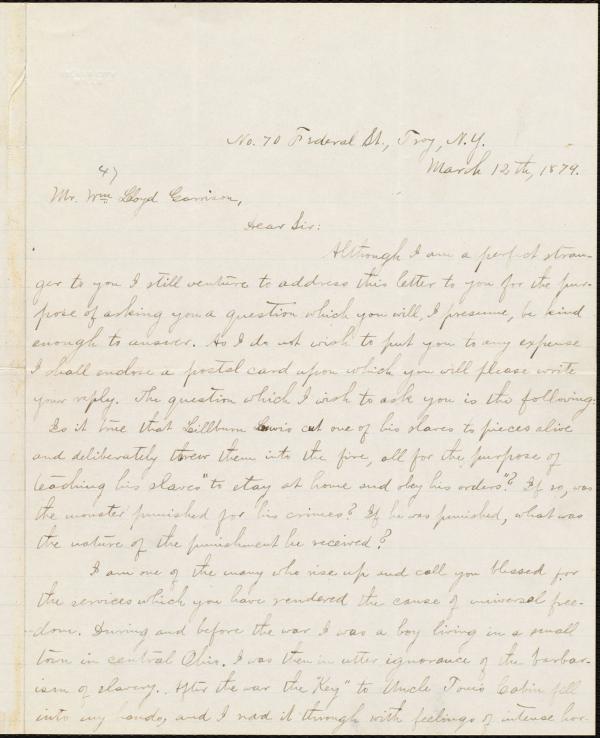 No. 70 Federal St., Troy, N.Y.
March 12th, 1879.
47
Mr. Wm. Lloyd Garrison,
Dear Sir:
Although I am a perfect stran-
ger to you I still venture to address this letter to you for the pur-
pose of asking you a question which you will, I presume, be kind
enough to answer. As I do not wish to put you to any expense
I shall enclose a postal card upon which you will please write
your reply. The question which I wish to ask you is the following:
Is it true that Lillburn Lewis cut one of his slaves to pieces alive
and deliberately threw them into the fire, all for the purpose of
teaching his slaves "to stay at home and obey his orders"? If so, was
the monster punished for his crimes? If he was punished, what was
the nature of the punishment he received?
I am one of the many who rise up and call you blessed for
the services which you have rendered the cause of universal free-
dom. During and before the war I was a boy living in a small
town in central Ohio. I was then in utter ignorance of the barbar-
ism of slavery. After the war the "Key" to Uncle Tom's Cabin fell
into my hands, and I read it through with feelings of intense hor-